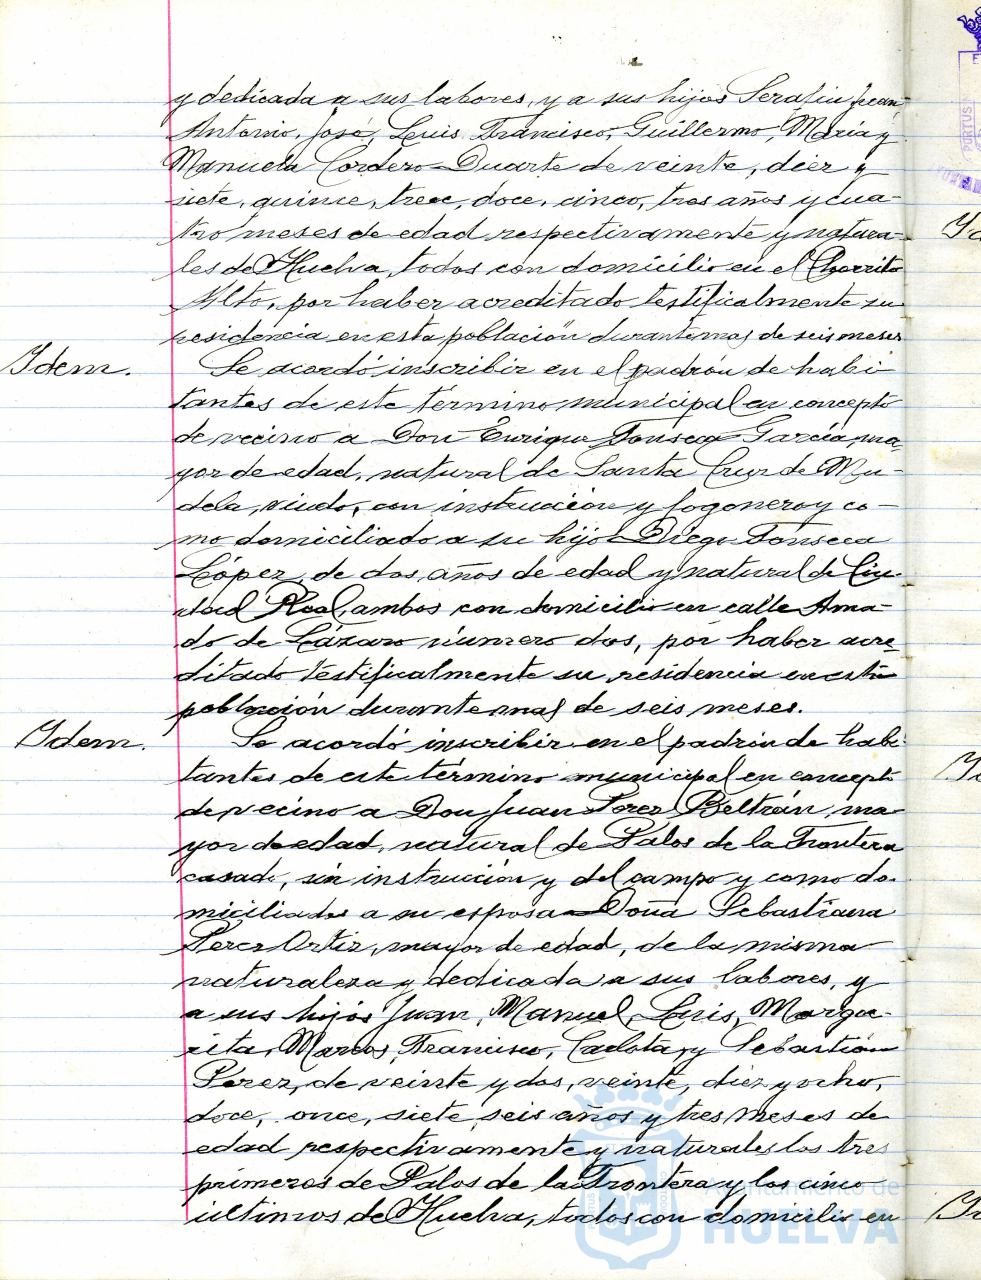 y dedicada a sus labores, y a sus hijos Serafin, Juan
Antonio, José, Luis, Francisco, Guillermo, María y
Manuela Cordero Duarte de veinte, diez y
siete, quince, trece, doce, cinco, tres años y cua-
tro meses de edad respectivamente y natura-
les de Huelva, todos con domicilio en el Chorrito
Alto, por haber acreditado testificalmente su
residencia en esta población durante mas de seis meses
Idem.
Se acordó inscribir en el padrón de habi-
tantes de este término municipal en concepto
de vecino a Don Enrique Fonseca García, ma-
yor de edad, natural de Santa Cruz de Mu-
dela, viudo, con instrucción y fogonero y co-
mo domiciliado a su hijo Diego Fonseca
López, de dos años de edad y natural de Ciu-
dad Real, ambos con domicilio en calle Ama-
do de Lázaro número dos, por haber acre-
ditado testificalmente su residencia en esta
población durante mas de seis meses.
Idem.
Se acordó inscribir en el padrón de habi-
tantes de este término municipal en concepto
de vecino a Don Juan Perez Beltrán, ma-
yor de edad, natural de Palos de la Frontera
casado, sin instrucción y del campo y como do-
miciliados a su esposa Doña Sebastiana
Perez Ortiz, mayor de edad, de la misma
naturaleza y dedicada a sus labores, y
a sus hijos Juan, Manuel, Luis, Marga-
rita, Marcos, Francisco, Carlota y Sebastián
Perez, de veinte y dos, veinte, diez y ocho,
doce, once, siete, seis años y tres meses de
edad respectivamente y naturales los tres
primeros de Palos de la Frontera y los cinco
últimos de Huelva, todos con domicilio en
Ayuntamiento de
HUELVA